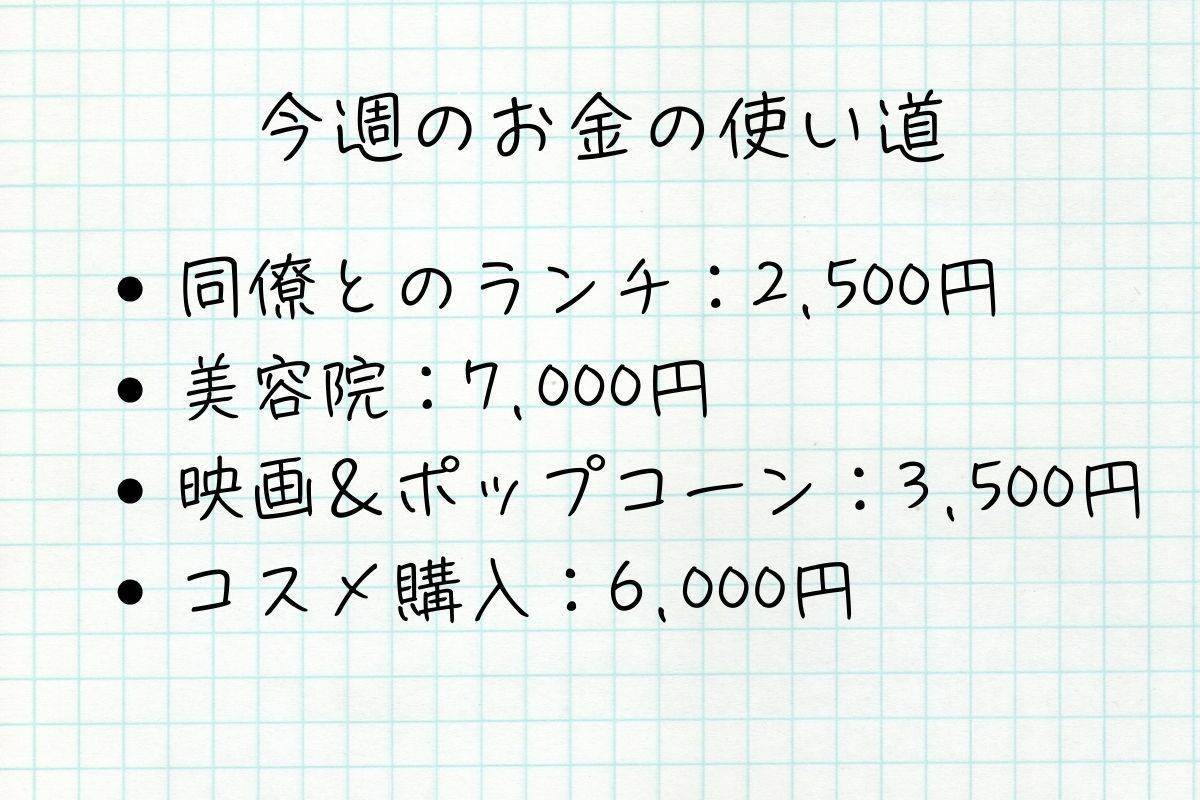 今週のお金の使い道
• 同僚とのランチ：2,500円
• 美容院：7,000円
• 映画＆ポップコーン：3,500円
• コスメ購入：6,000円